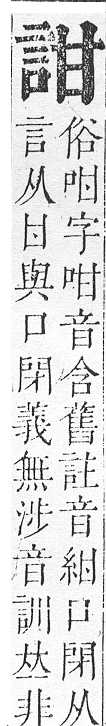 詌
俗咁字咁音含舊註音紺口閉从
言从甘與口閉義無涉音訓𠀤非